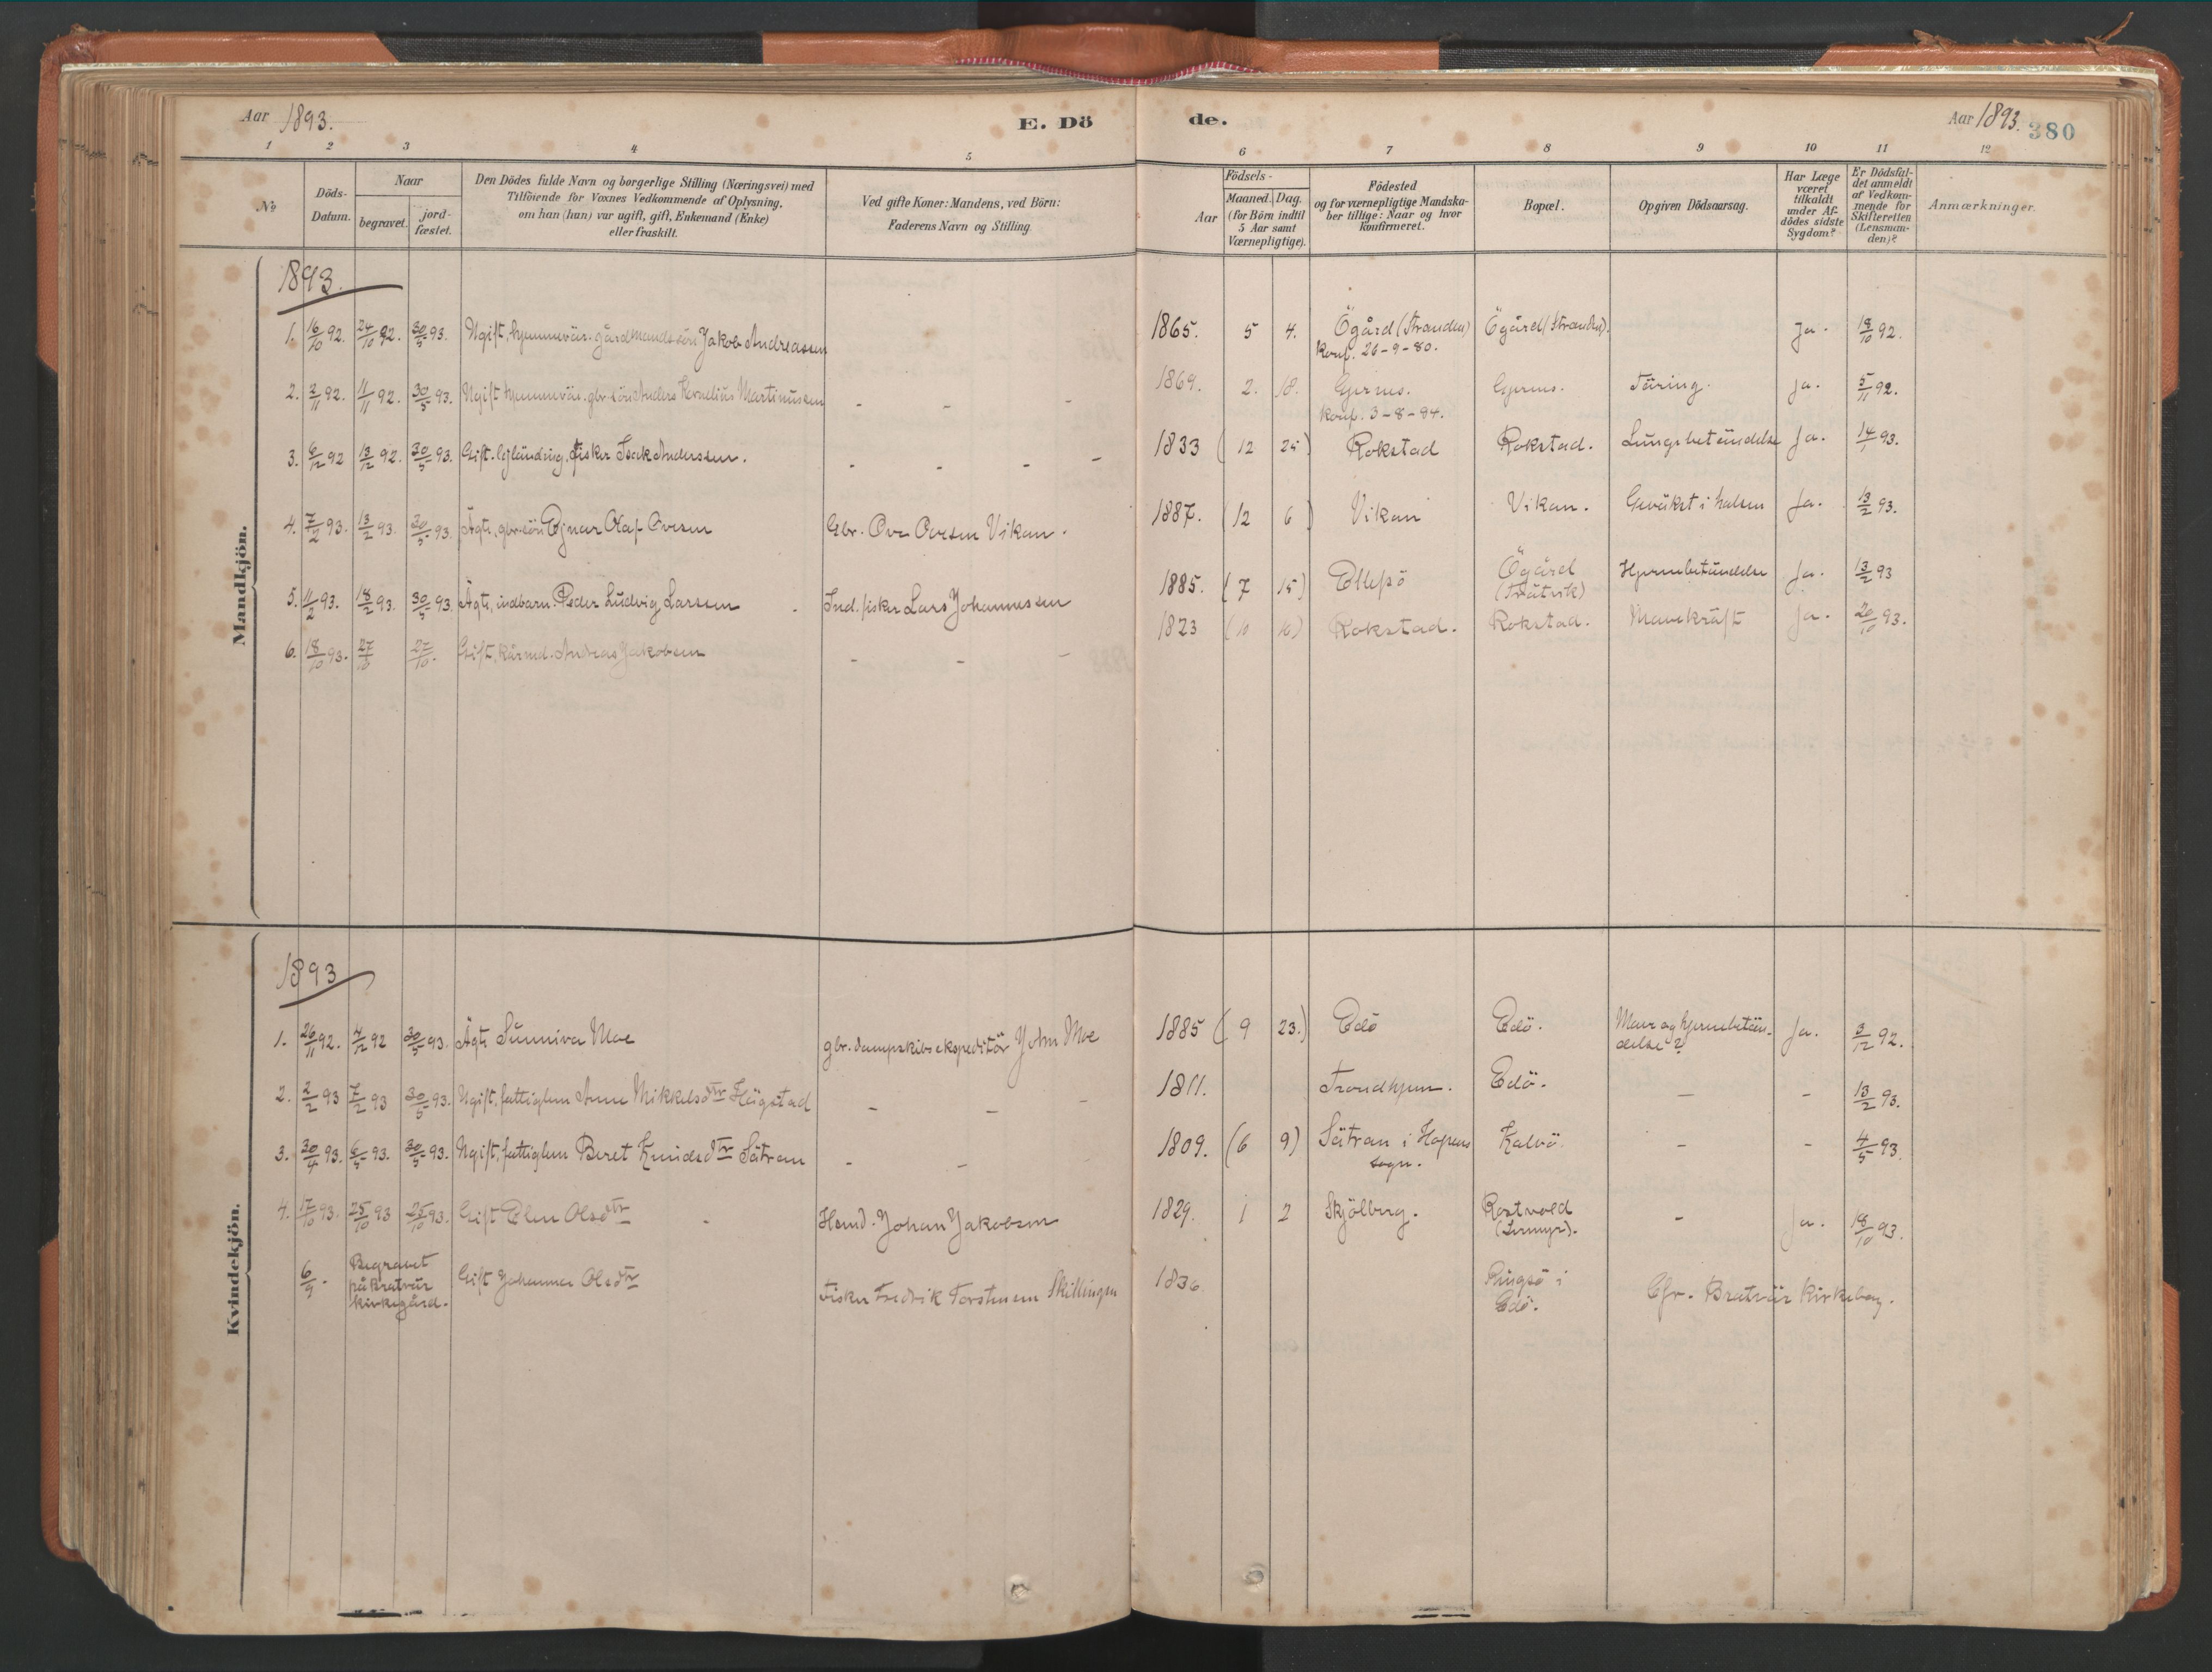 Aar 1893.
E. Dö
de.
Aar 1893.
380
1 2 3 4 5 6 7 8 9 10 11 12
№
Döds-
Datum.
Naar
begravet.
jord-
fæstet.
Den Dödes fulde Navn og borgerlige Stilling (Næringsvei) med
Tilföiende for Voxnes Vedkommende af Oplysning,
om han (hun) var ugift, gift, Enkemand (Enke)
eller fraskilt.
Ved gifte Koner: Mandens, ved Börn:
Faderens Navn og Stilling.
Aar
Födsels-
Maaned. Dag.
(for Börn indtil
5 Aar samt
Værnepligtige).
Födested
og for værnepligtige Mandska-
ber tillige: Naar og hvor
konfirmeret.
Bopæl.
Opgiven Dödsaarsag.
Har Læge
været
tilkaldt
under Af-
dödes sidste
Sygdom?
Er Dödsfal-
det anmeldt
af Vedkom-
mende for
Skifteretten
(Lensman-
den)?
Anmærkninger.
Mandkjön.
1893.
1. 16/10 92. 24/10 92. 30/5 93. Ugift, hjemmevær. gårdmandssön Jakob Andreassen 1865. 5 4. Ögård (Stranden) Ögård (Stranden). Ja. 18/10 92.
konf. 26-9-80.
2. 2/11 92. 11/11 92. 30/5 93. Ugift hjemmevær. gbr.sön Anders Kornelius Martinussen - - - 1869. 2. 18. Gjernes. Gjernes. Täring. Ja. 5/11 92.
konf. 3-8-84.
3. 6/12 92 13/12 92. 30/5 93. Gift. lejlænding, fisker Isak Anderssen. - - - - 1833 (12 25) Rokstad Rokstad. Lungebetändelse Ja. 14/1 93.
4. 7/2 93. 13/2 93. 30/5 93. Ägte, gbr.sön Ejnar Olaf Ovesen Gbr. Ove Ovesen Vikan. 1887. (12 6) Vikan Vikan. Gevækst i halsen Ja. 13/2 93.
5. 11/2 93. 18/2 93. 30/5 93. Ägte, indbarn. Peder Ludvig Larsen Ind. fisker Lars Johannessen 1885. (7 15) Ellefsö Ögård
(Tråtvik) Hjernebetändelse Ja. 13/2 93
6. 18/10 93. 27/10 27/10. Gift, kårmd. Andreas Jakobsen - - - 1823 (10 16) Rokstad. Rokstad. Mavekräft Ja. 20/10 93.
Kvindekjön.
1893
1. 26/11 92. 4/12 92 30/5 93. Ägte Sunniva Moe gbr. dampskibsekspeditör John Moe 1885 (9 23.) Edö Edö. Mave og hjernebetän-
delse? Ja. 3/12 92.
2. 2/2 93 7/2 93 30/5 93. Ugift, fattiglem Anne Mikkelsdtr Haugstad - - - 1811. Trondhjem. Edö. - - 13/2 93.
3. 30/4 93. 6/5 93. 30/5 93. Ugift, fattiglem Beret Knudsdtr Sätran - - 1809. (6 9) Sätran i Hopens
sogn. Kalvö. - - 4/5 93.
4. 17/10 93. 25/10 93 25/10 93. Gift Elen Olsdtr Hsmd. Johan Jakobsen 1829. 1 2 Skjölberg. Rostvold
- Ja. 18/10 93.
6/9. Begravet
på Bratvär
kirkegård. Gift Johanna Olsdtr Fisker Fredrik Torstensen Skillingen 1836. Ringsö i
Edö. Cfr. Bratvär kirkebog.